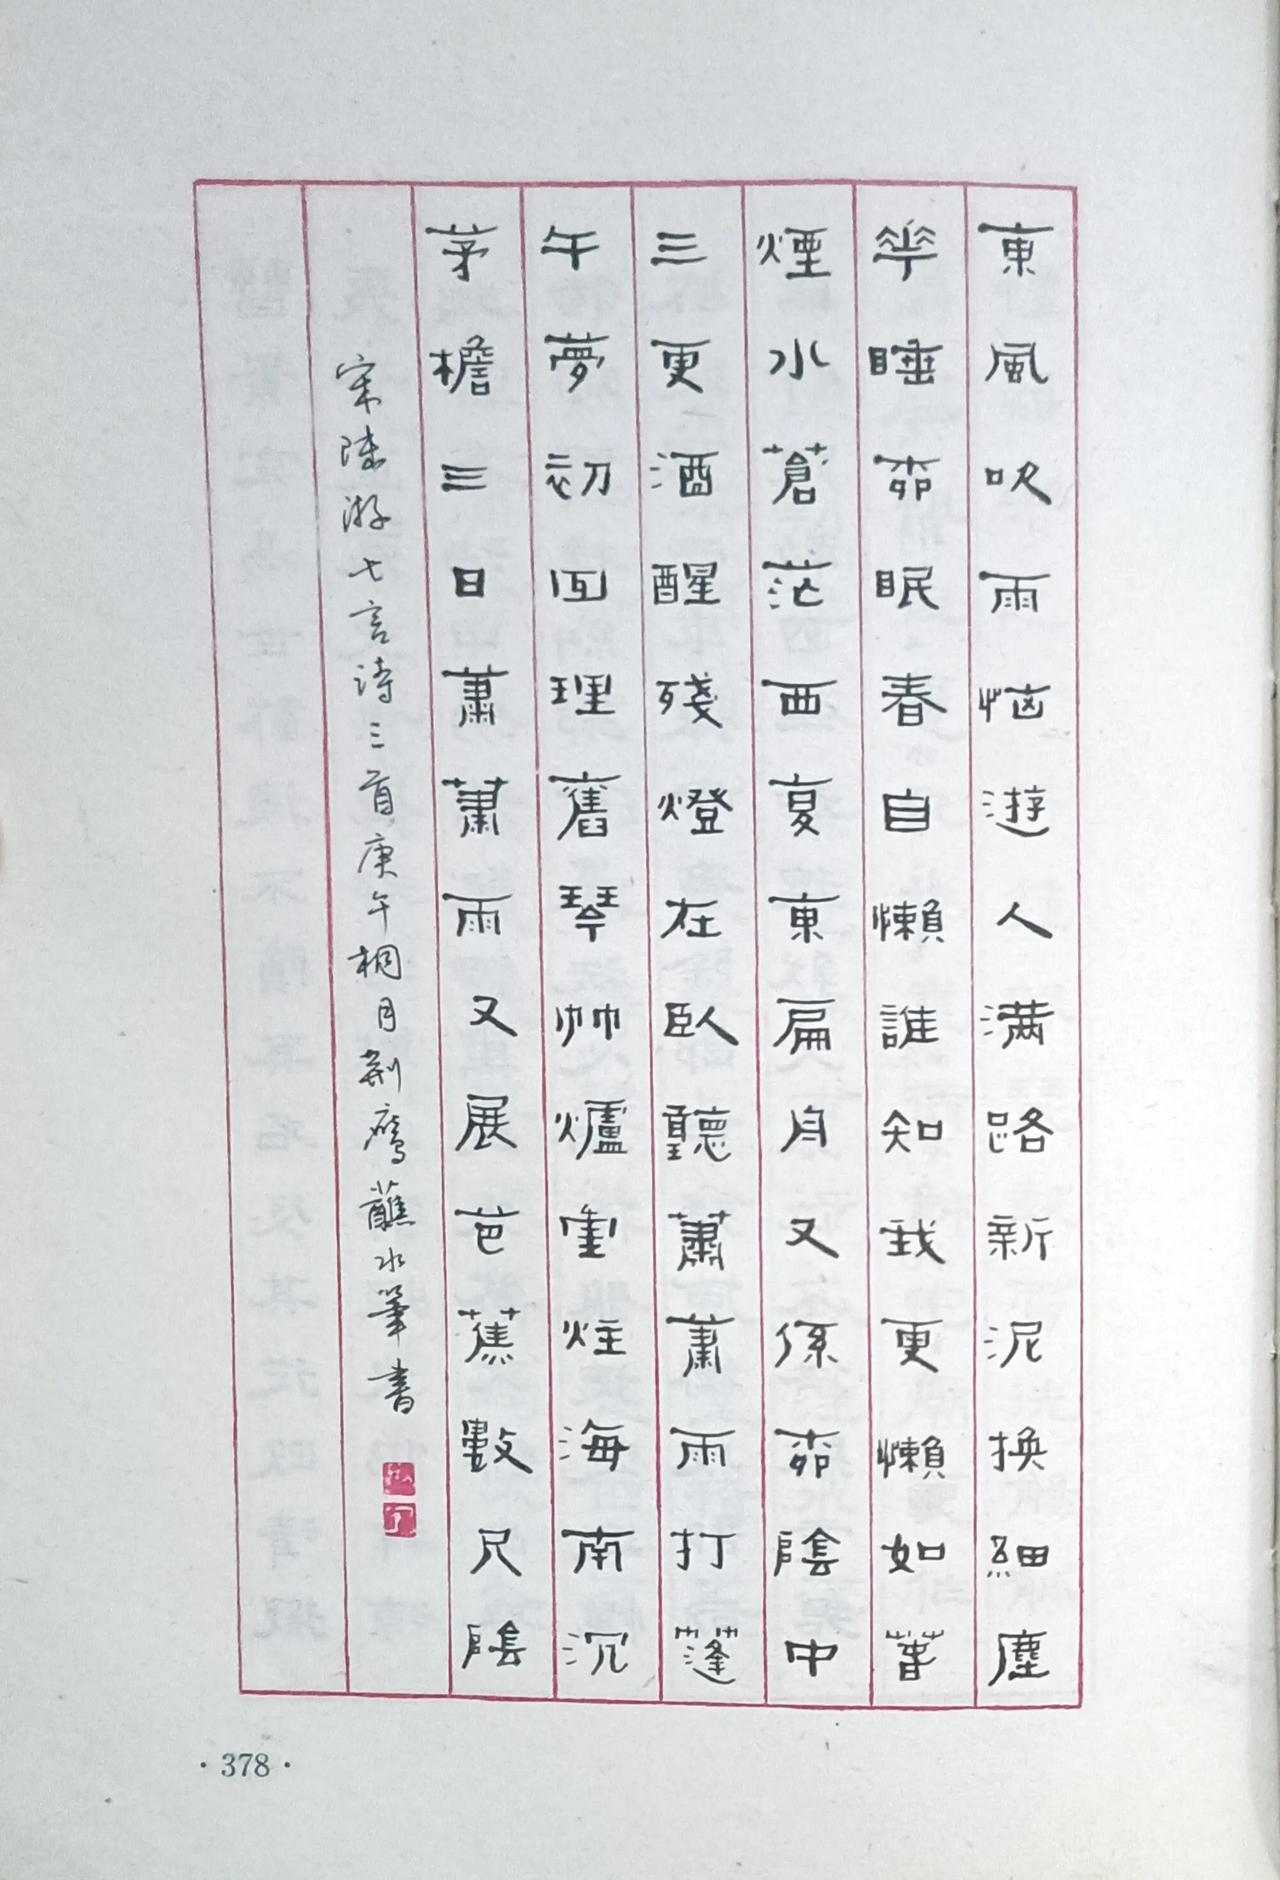 東風吹雨惱遊人滿路新泥換細塵
花睡柳眠春自懶誰知我更懶如春
煙水蒼茫西復東扁舟又係柳陰中
三更酒醒殘燈在臥聽蕭蕭雨打蓬
午夢初回理舊琴竹爐重炷海南沉
茅檐三日蕭蕭雨又展芭蕉數尺陰
宋陸游七言詩三首庚午桐月荆鹰蘸水筆書
·378·